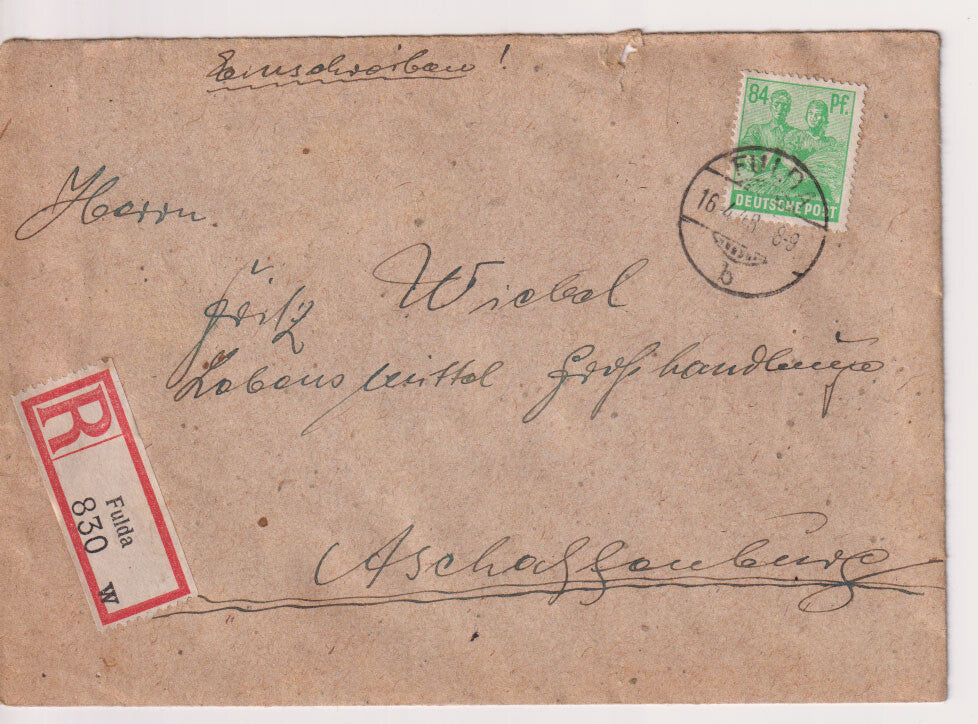 Einschreiben!
84 Pf.
DEUTSCHE POST
FULDA
16.4.48 8-9
b
Herrn
Fritz Wiebel
Lebensmittel Großhandlung
R
Fulda
830 W
Aschaffenburg